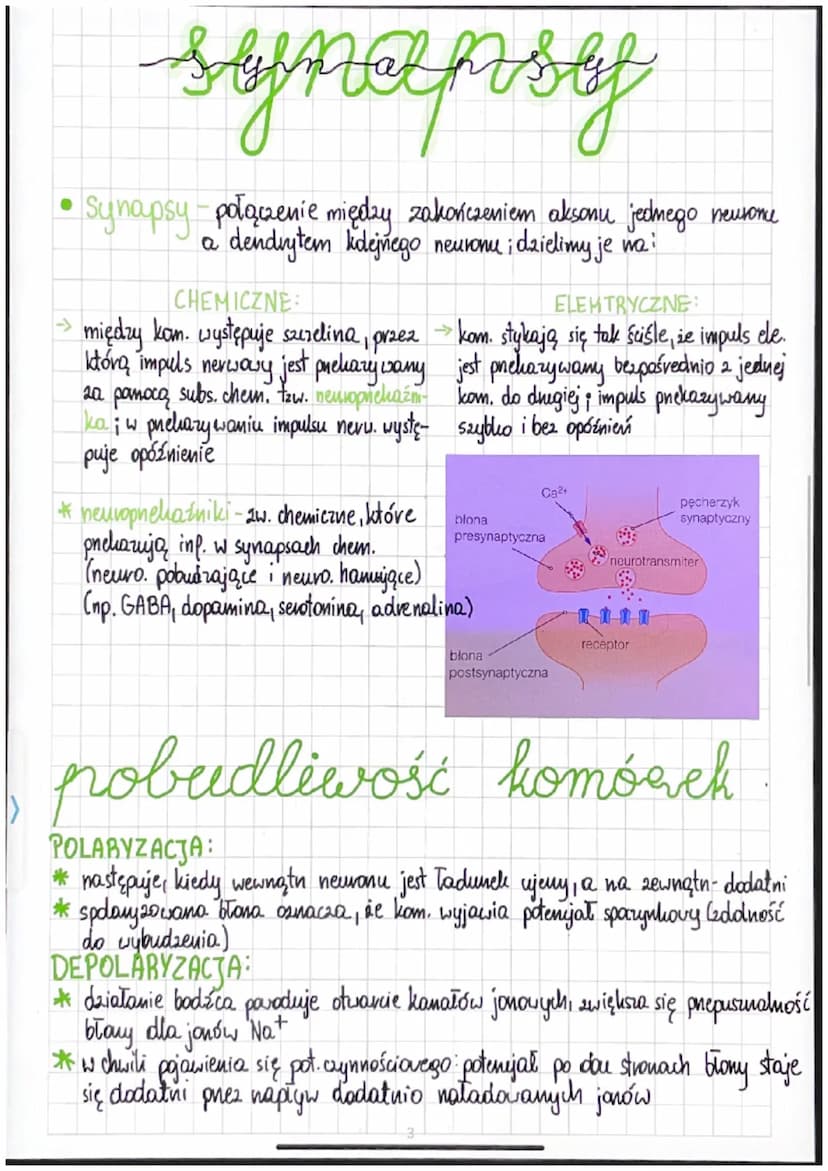 synapsy
• Synapsy - połączenie między zakończeniem aksonu jednego neuronu
a dendrytem kolejnego neuronu; dzielimy je na:
CHEMICZNE:
→ między kom. występuje szczelina, przez
którą impuls nerwowy jest przekazywany
za pomocą subs. chem. tzw. neuroprzekaźni-
ka; w przekazywaniu impulsu nerw. wystę-
puje opóźnienie
ELEKTRYCZNE:
→ kom. stykają się tak ściśle, że impuls ele.
jest przekazywany bezpośrednio z jednej
kom. do drugiej; impuls przekazywany
szybko i bez opóźnień
* neuroprzekaźniki - zw. chemiczne, które
przekazują inf. w synapsach chem.
(neuro. pobudzające i neuro. hamujące)
(np. GABA, dopamina, serotonina, adrenalina)
Ca²⁺
pęcherzyk
synaptyczny
błona
presynaptyczna
neurotransmiter
receptor
błona
postsynaptyczna
pobudliwość komórek
POLARYZACJA:
* następuje, kiedy wewnątrz neuronu jest ładunek ujemy, a na zewnątrz - dodatni
* spolaryzowana błona oznacza, że kom. wyjawia potencjał spoczynkowy (zdolność
do wybudzenia)
DEPOLARYZACJA:
* działanie bodźca powoduje otwarcie kanałów jonowych, zwiększa się przepuszczalność
błony dla jonów Na⁺
* w chwili pojawienia się pot. czynnościowego: potencjał po dou stronach błony staje
się dodatni przez napływ dodatnio naładowanych jonów
3